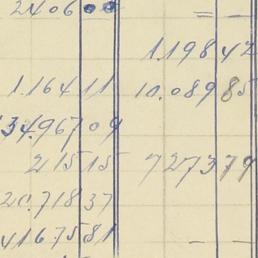 2406 00 =
1.198 42
1.164 11 10.089 85
34.967 09
215 15 7273 79
20.718 37
4167.5 81 —